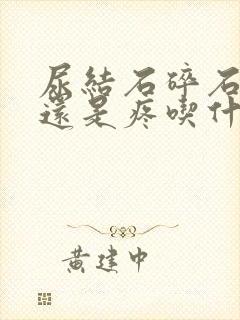 尿結石碎石
還是疼喫什
黃建中